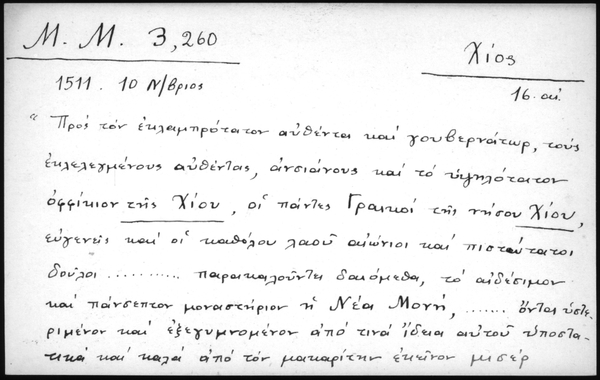 Μ. Μ. 3,260
Χίος
1511. 10 Ν/βριος
16. αἰ.
"Πρὸς τὸν ἐκλαμπρότατον αὐθέντα καὶ γουβερνάτωρ, τοὺς
ἐκλελεγμένους αὐθέντας, ἀνσιάνους καὶ τὸ ὑψηλότατον
ὀφφίκιον τῆς Χίου, οἱ πάντες Γραικοί τῆς νήσου Χίου,
εὐγενεῖς καὶ οἱ καθόλου λαοῦ αἰώνιοι καὶ πιστότατοι
δοῦλοι .......... παρακαλοῦντες δεόμεθα, τὸ αἰδέσιμον
καὶ πάνσεπτον μοναστήριον ἡ Νέα Μονή, ....... ὄντας ὑστε-
ριμένον καὶ ἐξεγυμνομένον ἀπό τινά ἴδεια αὐτοῦ ὑποστα-
τικὰ καὶ καλὰ ἀπὸ τὸν μακαρίτην ἐκεῖνον μισέρ